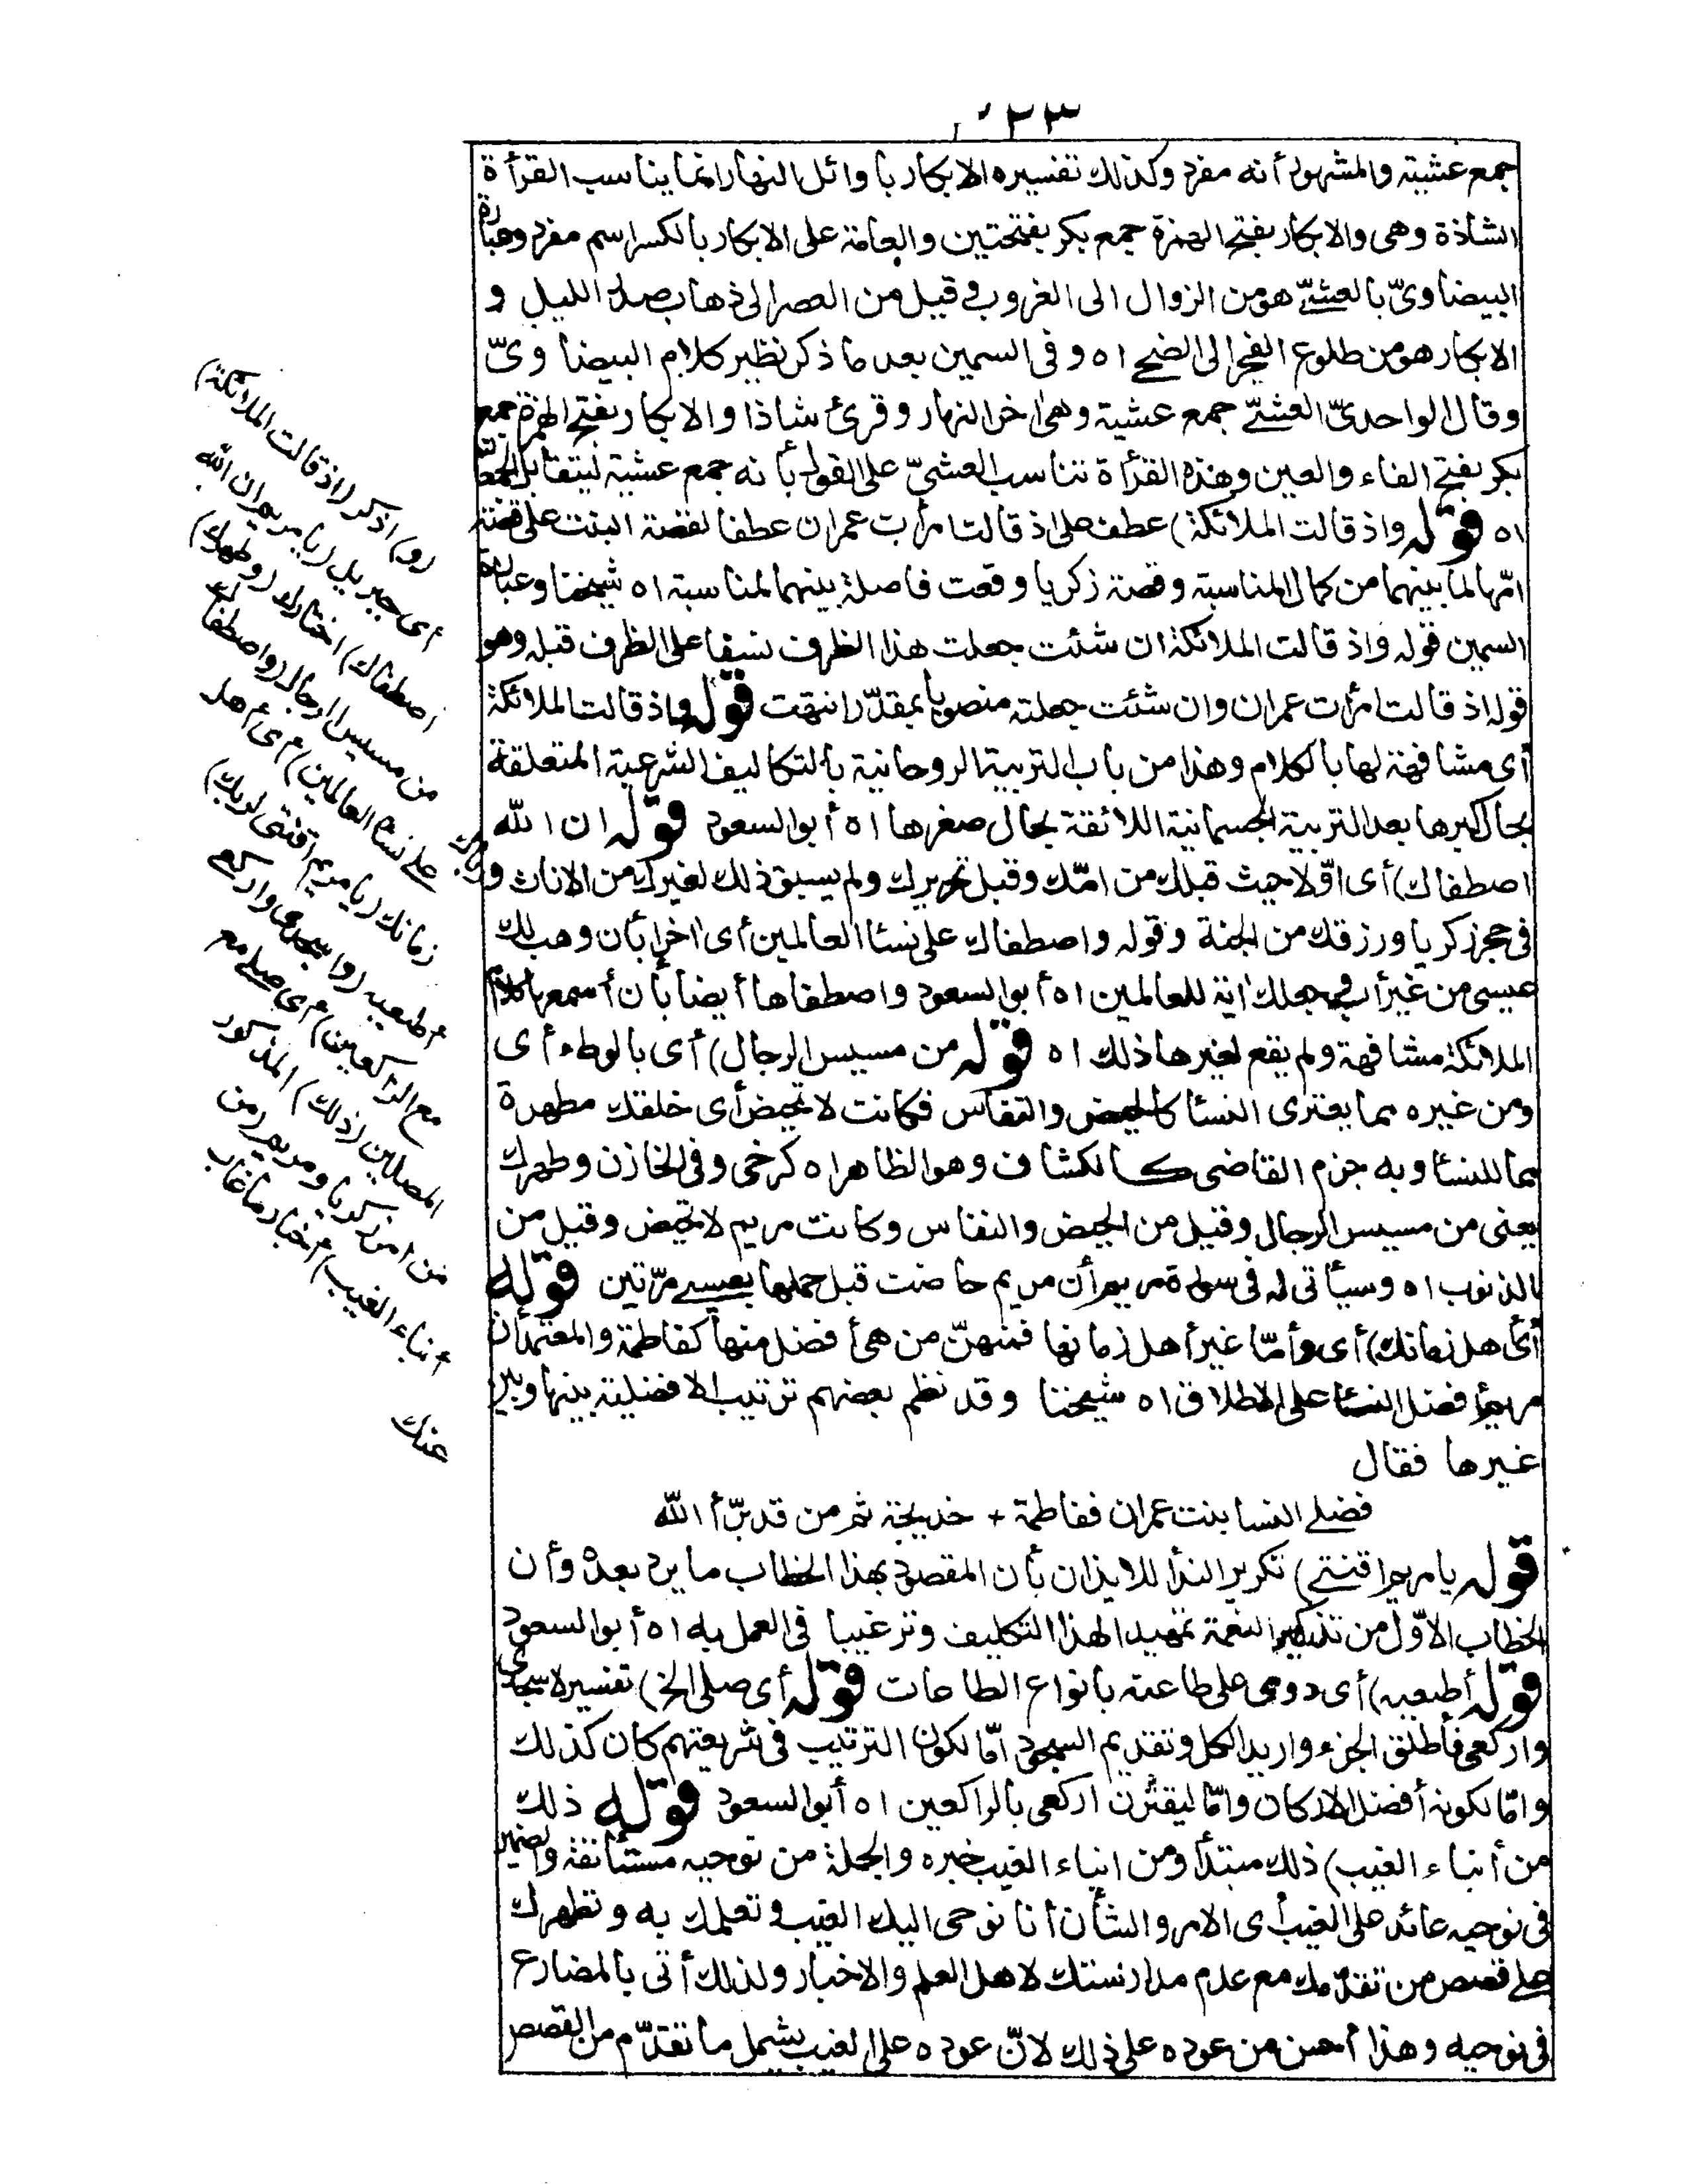 جمع عشية والمشهور أنه مفرد وكذلك تفسيره الابكار باوائل النهار انما يناسب القرأة
الشاذة وهى والابكار بفتح الهمزة جمع بكر بفتحتين والعامة على الابكار بالكسر اسم مفرد وعبارة
البيضاوىّ بالعشىّ هو من الزوال الى الغروب وقيل من العصر الى ذهاب صدر الليل و
الابكار هو من طلوع الفجر الى الضحى اه وفى السمين بعد ما ذكر نظير كلام البيضاوىّ
وقال الواحدىّ العشىّ جمع عشية وهى اخر النهار وقرئ شاذا والابكار بفتح الهمزة جمع
بكر بفتح الفاء والعين وهذه القرأة تناسب العشىّ على القول بأنه جمع عشية ليتقابل الجمعان
اه قوله واذ قالت الملائكة) عطف على اذ قالت امرأت عمران عطفا لقصة البنت على قصة
امّها لما بينهما من كمال المناسبة وقصة زكريا وقعت فاصلة بينهما لمناسبة اه شيخنا وعبارة
السمين قوله واذ قالت الملائكة ان شئت جعلت هذا الظرف نسقا على الظرف قبله وهو
قوله اذ قالت امرأت عمران وان شئت جعلته منصوبا بمقدّر انتهت قوله واذ قالت الملائكة
أى مشافهة لها بالكلام وهذا من باب التربية الروحانية بالتكاليف الشرعية المتعلقة
بحال كبرها بعد التربية الجسمانية اللائقة بحال صغرها اه أبو السعود قوله ان الله
اصطفاك) أى اوّلا حيث قبلك من امّك وقبل تحريرك ولم يسبق ذلك لغيرك من الاناث ورباك
فى حجر زكريا ورزقك من الجنة وقوله واصطفاك على نسا العالمين أى اخرا بأن وهب لك
عيسى من غير أب وجعلك اية للعالمين اه أبو السعود واصطفاها أيضا بأن أسمعها كلام
الملائكة مشافهة ولم يقع لغيرها ذلك اه قوله من مسيس الرجال) أى بالوطء أى
ومن غيره مما يعترى النسا كالحيض والنفاس فكانت لا تحيض أى خلقك مطهرة
مما للنسا وبه جزم القاضى كالكشاف وهو الظاهر اه كرخى وفى الخازن وطهرك
يعنى من مسيس الرجال وقيل من الحيض والنفاس وكانت مريم لا تحيض وقيل من
الذنوب اه وسيأتى له فى سورة مريم أن مريم حاضت قبل حملها بعيسى مرّتين قوله
أى أهل زمانك) أى وأمّا غير أهل زمانها فمنهنّ من هى أفضل منها كفاطمة والمعتمد أن
مريم أفضل النسا على الاطلاق اه شيخنا وقد نظم بعضهم ترتيب الافضلية بينها وبين
غيرها فقال
فضلى النسا بنت عمران ففاطمة + خديجة ثم من قد برّأ الله
قوله يا مريم اقنتى) تكرير الندأ للايذان بأن المقصود بهذا الخطاب ما يرد بعده وأن
الخطاب الاوّل من تذكير النعمة تمهيدا لهذا التكليف وترغيبا فى العمل به اه أبو السعود
قوله أطيعيه) أى دومى على طاعته بانواع الطاعات قوله أى صلى الخ) تفسير لاسجدى
واركعى فأطلق الجزء واريد الكل وتقديم السجود امّا لكون الترتيب فى شريعتهم كان كذلك
وامّا لكونه أفضل الاركان وامّا ليقترن اركعى بالراكعين اه أبو السعود قوله ذلك
من أنباء الغيب) ذلك مبتدأ ومن انباء الغيب خبره والجملة من نوحيه مستأنفة والضمير
فى نوحيه عائد على الغيب أى الامر والشأن أنا نوحى اليك الغيب ونعلمك به ونظهرك
على قصص من تقدّمك مع عدم مدارستك لاهل العلم والاخبار ولذلك أتى بالمضارع
فى نوحيه وهذا أحسن من عوده على ذلك لانّ عوده على الغيب يشمل ما تقدّم من القصص
(و) اذكر (اذ قالت الملائكة)
أى جبريل (يا مريم ان الله
اصطفاك) اختارك (وطهرك)
من مسيس الرجال (واصطفاك
على نسا العالمين) أى أهل
زمانك (يا مريم اقنتى لربك)
أطيعيه (واسجدى واركعى
مع الراكعين) أى صلى مع
المصلين (ذلك) المذكور
من امر زكريا ومريم (من
أنباء الغيب) أخبار ما غاب
عنك